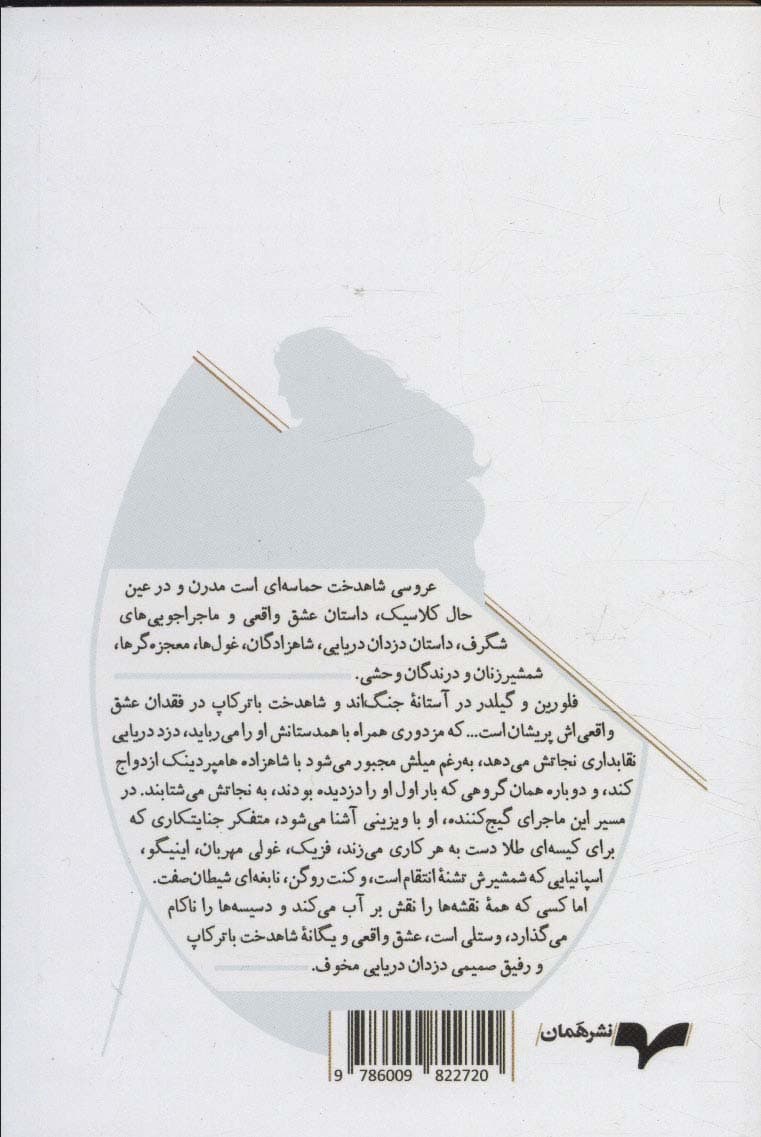 عروسی شاهدخت حماسه‌ای است مدرن و در عین
حال کلاسیک، داستان عشق واقعی و ماجراجویی‌های
شگرف، داستان دزدان دریایی، شاهزادگان، غول‌ها، معجزه‌گرها،
شمشیرزنان و درندگان وحشی.
فلورین و گیلدر در آستانهٔ جنگ‌اند و شاهدخت باترکاپ در فقدان عشق
واقعی‌اش پریشان است... که مزدوری همراه با همدستانش او را می‌رباید، دزد دریایی
نقابداری نجاتش می‌دهد، به‌رغم میلش مجبور می‌شود با شاهزاده هامپردینک ازدواج
کند، و دوباره همان گروهی که بار اول او را دزدیده بودند، به نجاتش می‌شتابند. در
مسیر این ماجرای گیج‌کننده، او با ویزینی آشنا می‌شود، متفکر جنایتکاری که
برای کیسه‌ای طلا دست به هر کاری می‌زند، فزیک، غولی مهربان، اینیگو،
اسپانیایی که شمشیرش تشنهٔ انتقام است، و کنت روگن، نابغه‌ای شیطان‌صفت.
اما کسی که همهٔ نقشه‌ها را نقش بر آب می‌کند و دسیسه‌ها را ناکام
می‌گذارد، وستلی است، عشق واقعی و یگانهٔ شاهدخت باترکاپ
و رفیق صمیمی دزدان دریایی مخوف.
نشر هَمان
9 786009 822720